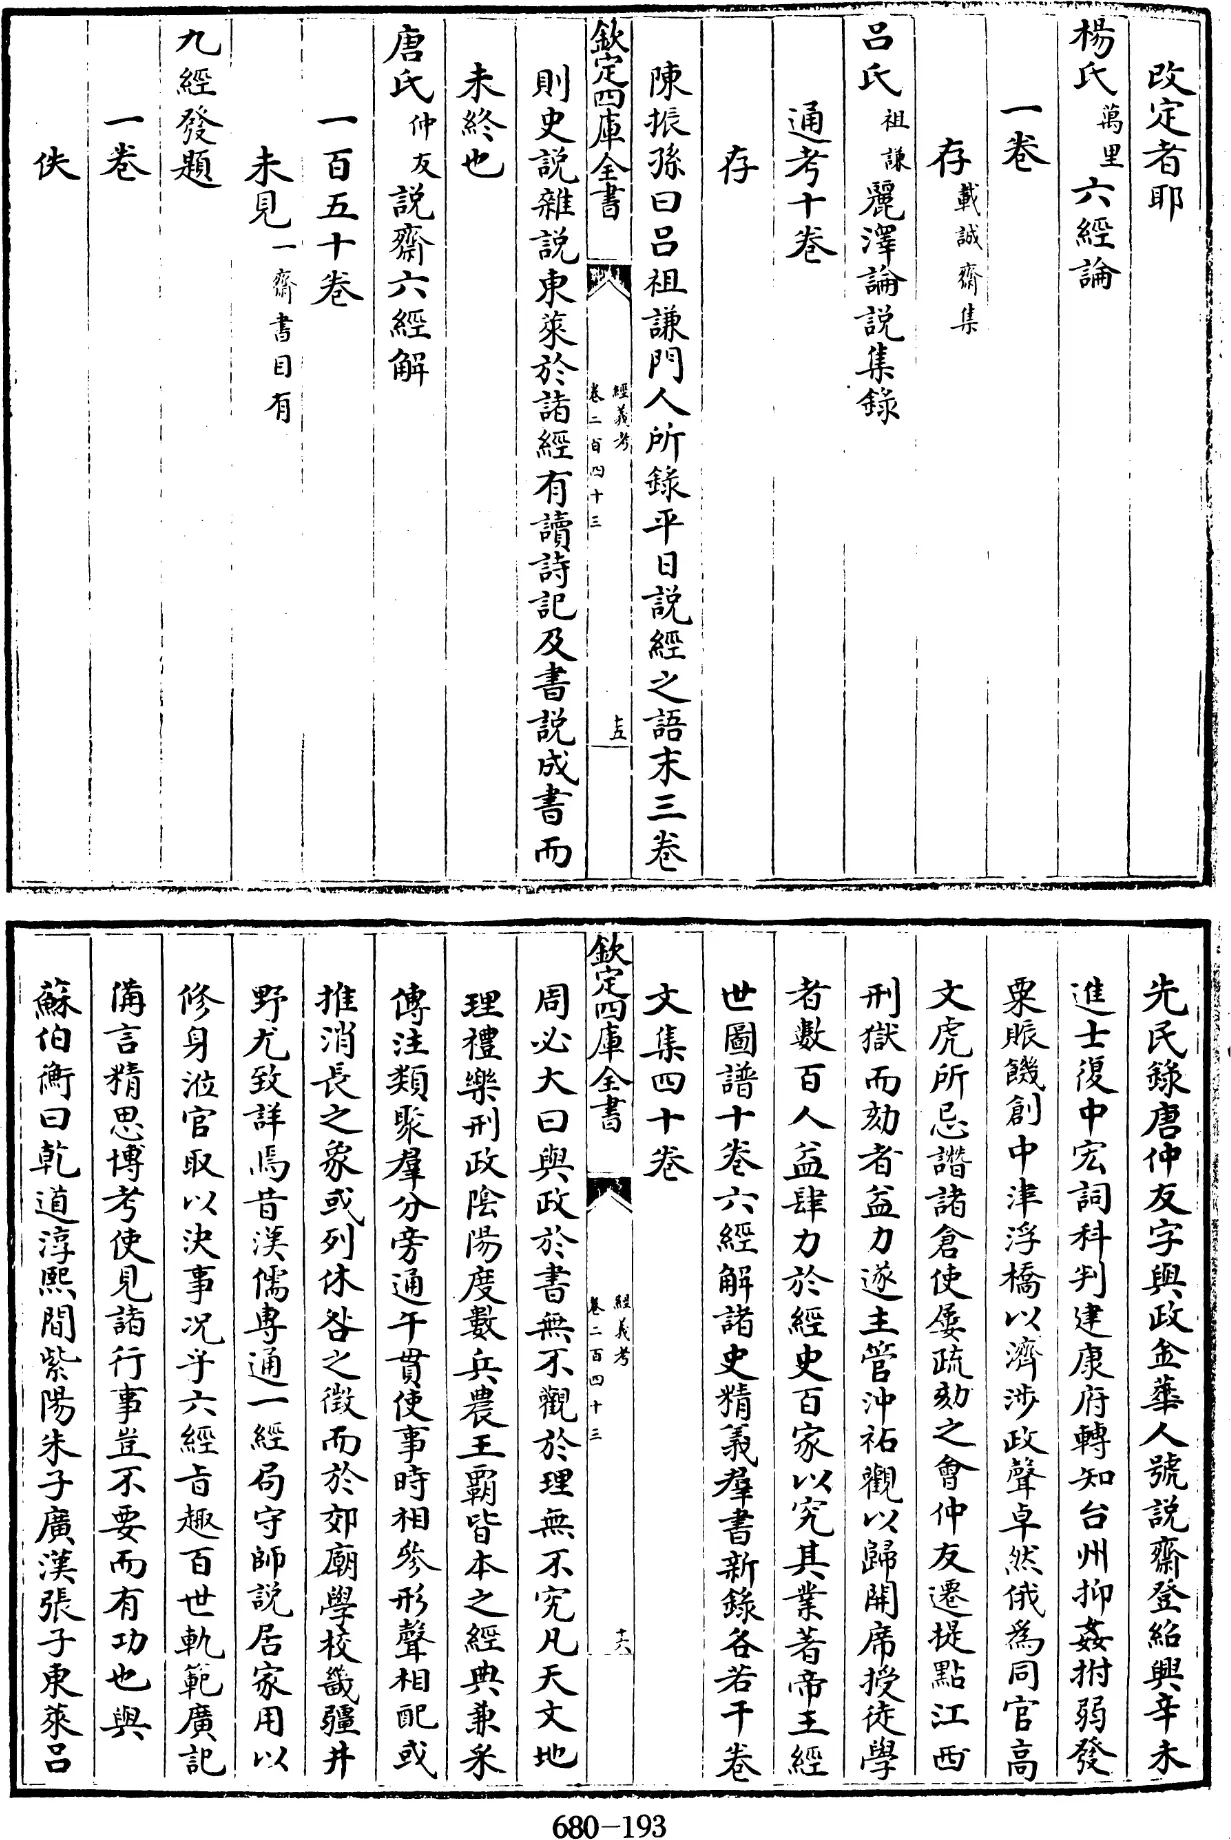 改定者耶
楊氏萬里六經論
一卷
存載誠齋集
呂氏祖謙麗澤論説集録
通考十卷
存
陳振孫曰呂祖謙門人所錄平日説經之語末三卷
欽定四庫全書
經義考
卷二百四十三
十五
則史説雜説東萊於諸經有讀詩記及書説成書而
未終也
唐氏仲友説齋六經解
一百五十卷
未見一齋書目有
九經發題
一卷
佚
先民錄唐仲友字與政金華人號説齋登紹興辛未
進士復中宏詞科判建康府轉知台州抑姦拊弱發
粟賑饑創中津浮橋以濟渉政聲卓然俄爲同官高
文虎所忌譖諸倉使屢疏劾之會仲友遷提點江西
刑獄而劾者益力遂主管沖祐觀以歸開席授徒學
者數百人益肆力於經史百家以究其業著帝王經
世圖譜十卷六經解諸史精義羣書新錄各若干卷
文集四十卷
欽定四庫全書
經義考
卷二百四十三
十六
周必大曰與政於書無不觀於理無不究凡天文地
理禮樂刑政陰陽度數兵農王霸皆本之經典兼采
傳注類聚羣分旁通午貫使事時相參形聲相配或
推消長之象或列休咎之徴而於郊廟學校畿疆井
野尤致詳焉昔漢儒専通一經局守師説居家用以
修身涖官取以決事况乎六經㫖趣百世軌範廣記
備言精思博考使見諸行事豈不要而有功也與
蘇伯衡曰乾道淳熙間紫陽朱子廣漢張子東萊呂
680-193